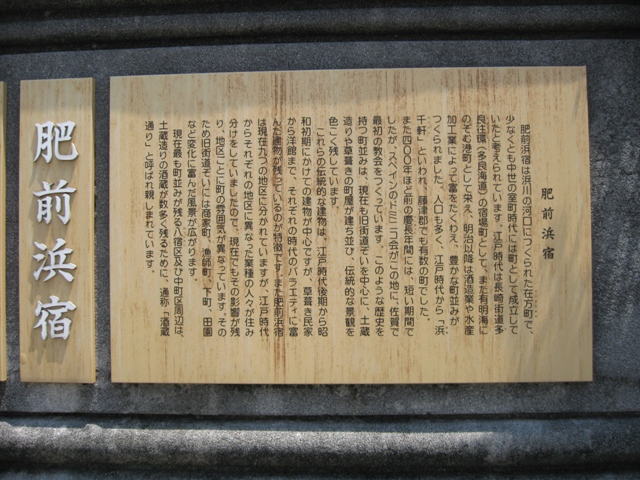 肥前浜宿
肥前浜宿
肥前浜宿は浜川の河口につくられた在方町で、
少なくとも中世の室町時代には町として成立して
いたと考えられています。江戸時代は長崎街道多
良往還（多良海道）の宿場町として、また有明海に
のぞむ港町として栄え、明治以降は酒造業や水産
加工業によって富をたくわえ、豊かな町並みが
つくられました。人口も多く、江戸時代から「浜
千軒」といわれ、藤津郡でも有数の町でした。
また四〇〇年ほど前の慶長年間には、短い期間で
したが、スペインのドミニコ会がこの地に、佐賀で
最初の教会をつくっています。このような歴史を
持つ町並みは、現在も旧街道ぞいを中心に、土蔵
造りや草葺きの町屋が建ち並び、伝統的な景観を
色こく残しています。
これらの伝統的な建物は、江戸時代後期から昭
和初期にかけての建物が中心ですが、草葺き民家
から洋館まで、それぞれの時代のバラエティに富
んだ建物が残っているのが特徴です。また肥前浜宿
は現在九つの地区に分かれていますが、江戸時代
からそれぞれの地区に異なった業種の人々が住み
分けをしていましたので、現在でもその影響が残
り、地区ごとに町の雰囲気が異なっています。その
ため旧街道ぞいには商家町、漁師町、下町、田園
など変化に富んだ風景が広がります。
現在最も町並みが残る八宿区及び中町区周辺は、
土蔵造りの酒蔵が数多く残るために、通称「酒蔵
通り」と呼ばれ親しまれています。